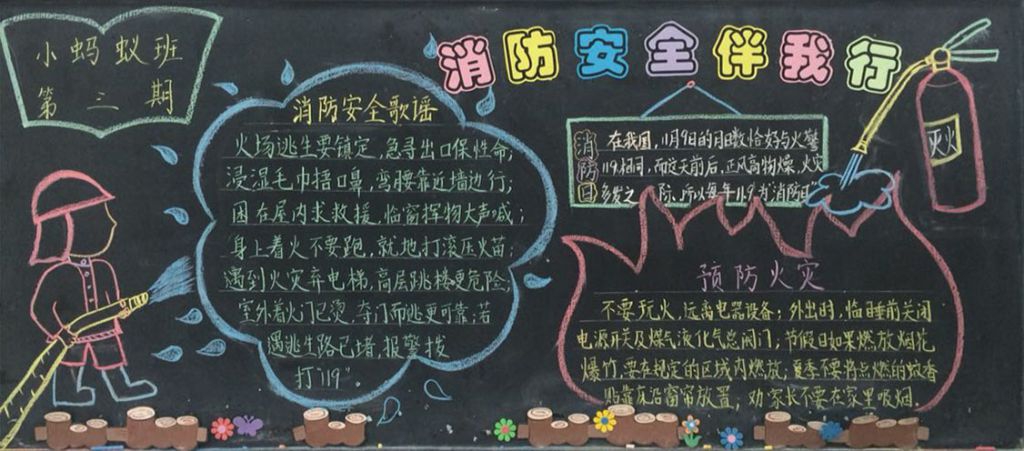 小蚂蚁班
第三期
消防安全伴我行
消防安全歌谣
火场逃生要镇定,急寻出口保性命;
浸湿毛巾捂口鼻,弯腰靠近墙边行;
困在屋内求救援,临窗挥物大声喊;
身上着火不要跑,就地打滚压火苗;
遇到火灾弃电梯,高层跳楼更危险;
室外着火门已烫,夺门而逃更可靠;若
遇逃生路已堵,报警拨
打"119"。
消防日
在我国,11月9日的月日数恰好与火警
119相同,而这天前后,正风高物燥,火灾
多发之际,所以每年11.9为消防日
预防火灾
不要玩火,远离电器设备;外出时,临睡前关闭
电源开关及煤气液化气总阀门;节假日如果燃放烟花
爆竹,要在规定的区域内燃放;夏季不要将点燃的蚊香
贴靠床沿窗帘放置,劝家长不要在家里吸烟.
灭火